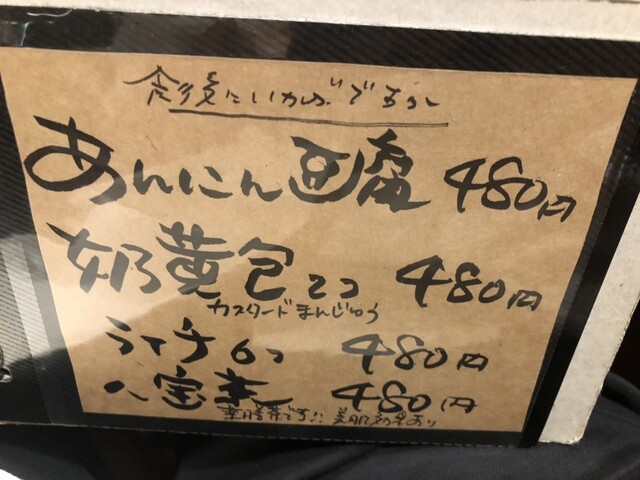 食後にいかがですか
あんにん豆腐 480円
奶黄包 2コ 480円
カスタードまんじゅう
ライチ 6コ 480円
八宝茶 480円
薬膳茶です!! 美肌効果あり